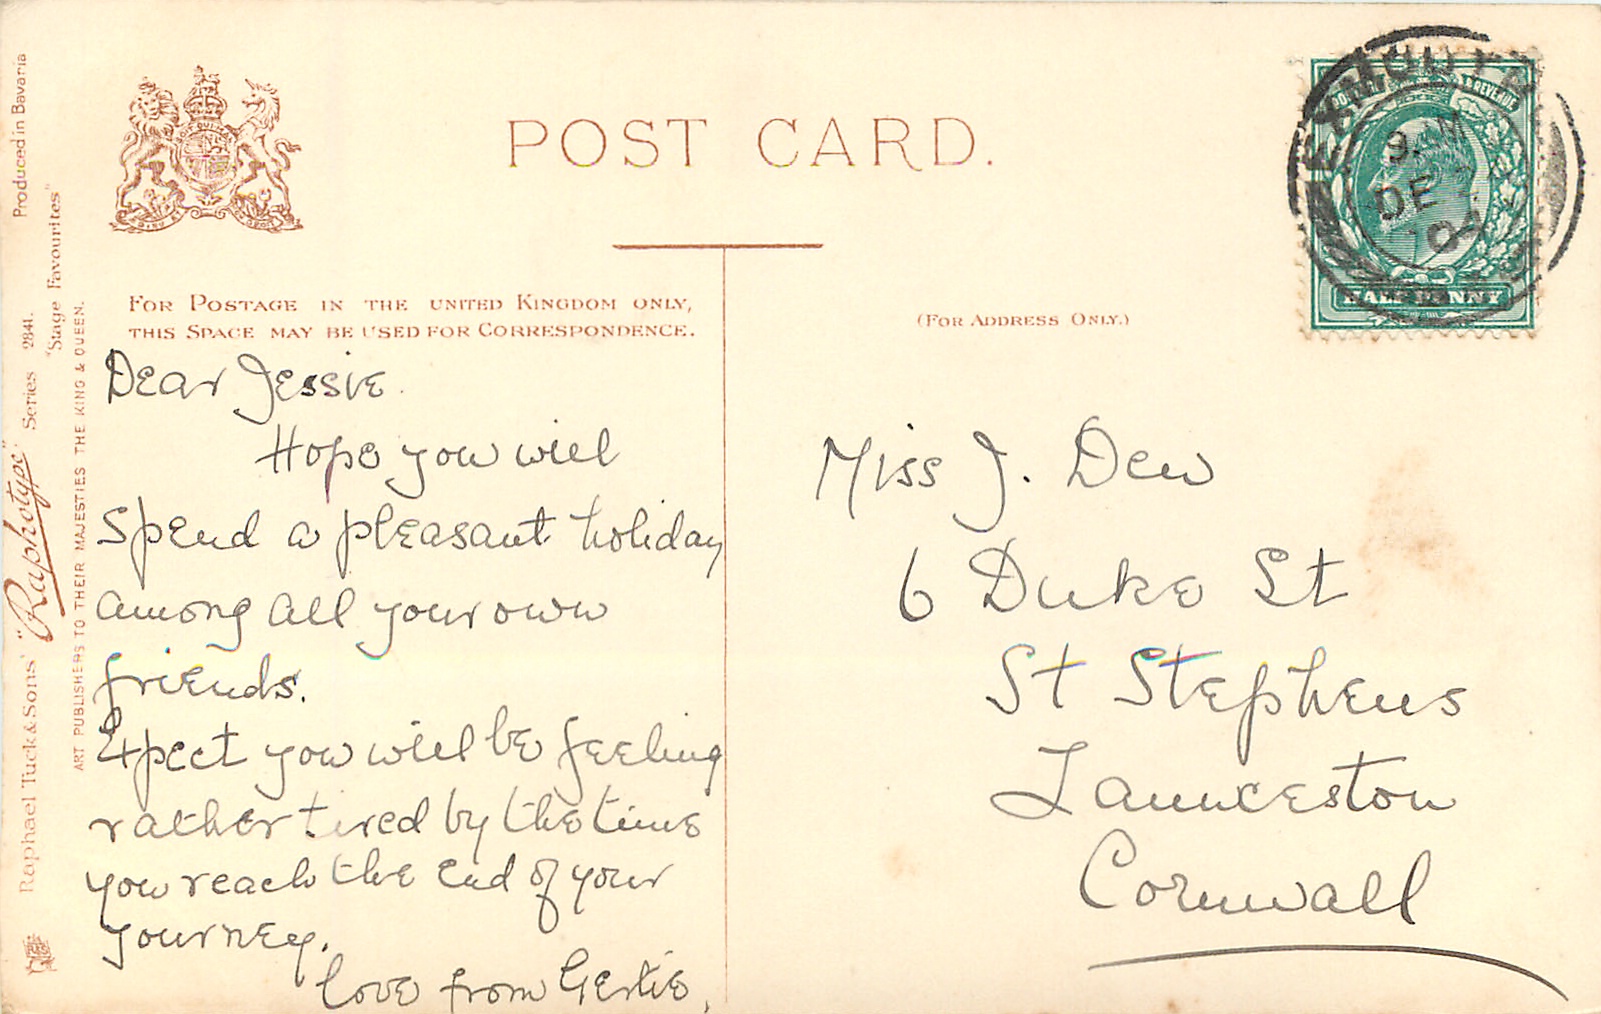 Produced in Bavaria
"Stage Favourites"
Raphael Tuck & Sons' "Raphotype" Series 2841.
ART PUBLISHERS TO THEIR MAJESTIES THE KING & QUEEN.
POST CARD.
FOR POSTAGE IN THE UNITED KINGDOM ONLY,
THIS SPACE MAY BE USED FOR CORRESPONDENCE.
(FOR ADDRESS ONLY.)
REVENUE
HALFPENNY
EXMOUTH
DE
Dear Jessie.
Hope you will
spend a pleasant holiday
among all your own
friends.
Expect you will be feeling
rather tired by the time
you reach the end of your
journey.
Love from Gertie.
Miss J. Dew
6 Duke St
St Stephens
Launceston
Cornwall